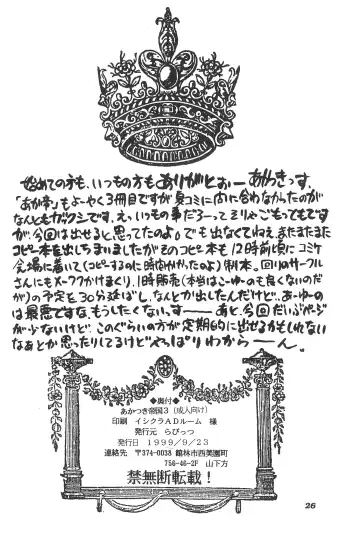 始めての方も、いつもの方もありがとおーーあかつきっす。
「あか帝」もよーやく3冊目ですが夏コミに間に合わなかったのが
なんともガックシです。えっ、いつもの事だろーってそりゃごもっともです
が、今回は出せると思ってたのよ。でも出なくてねえ。またまたまた
コピー本を出しちまいましたがそのコピー本も12時前頃にコミケ
会場に着いて(コピーするのに時間がかかったのよ)製本。回りのサークル
さんにもメーワクかけまくり、1時販売(本当はこーゆーのも良くないのだ
が)の予定を30分延ばし、なんとか出したんだけど、あーゆーの
は最悪ですな、もうしたくないっすーー。あと、今回だいぶページ
が少ないけど、このぐらいの方が定期的に出せるかもしれない
なぁとか思ったりしてるけどやっぱりわからーーん。
◆奥付◆
あかつき帝国3(成人向け)
印刷 イシクラADルーム 様
発行元 らびっつ
発行日 1999/9/23
連絡先 〒374-0038 館林市西美園町
756-46-2F 山下方
禁無断転載！
26